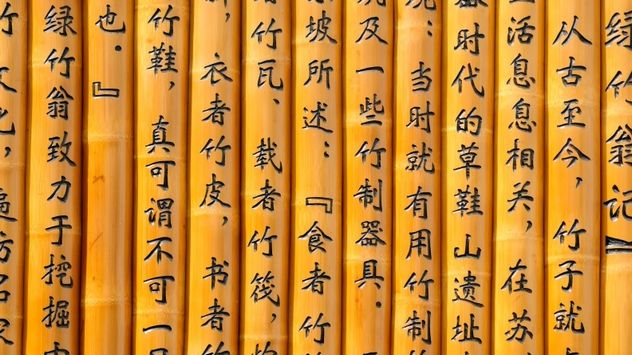 绿竹翁记』
从古至今，竹子就
生活息息相关，在苏
器时代的草鞋山遗址
：当时就有用竹制
及一些竹制器具．
坡所述：『食者竹
者竹瓦、载者竹筏，
，衣者竹皮，书者竹
竹鞋，真可谓不可一
也．』
绿竹翁致力于挖掘
文化，遍访名家